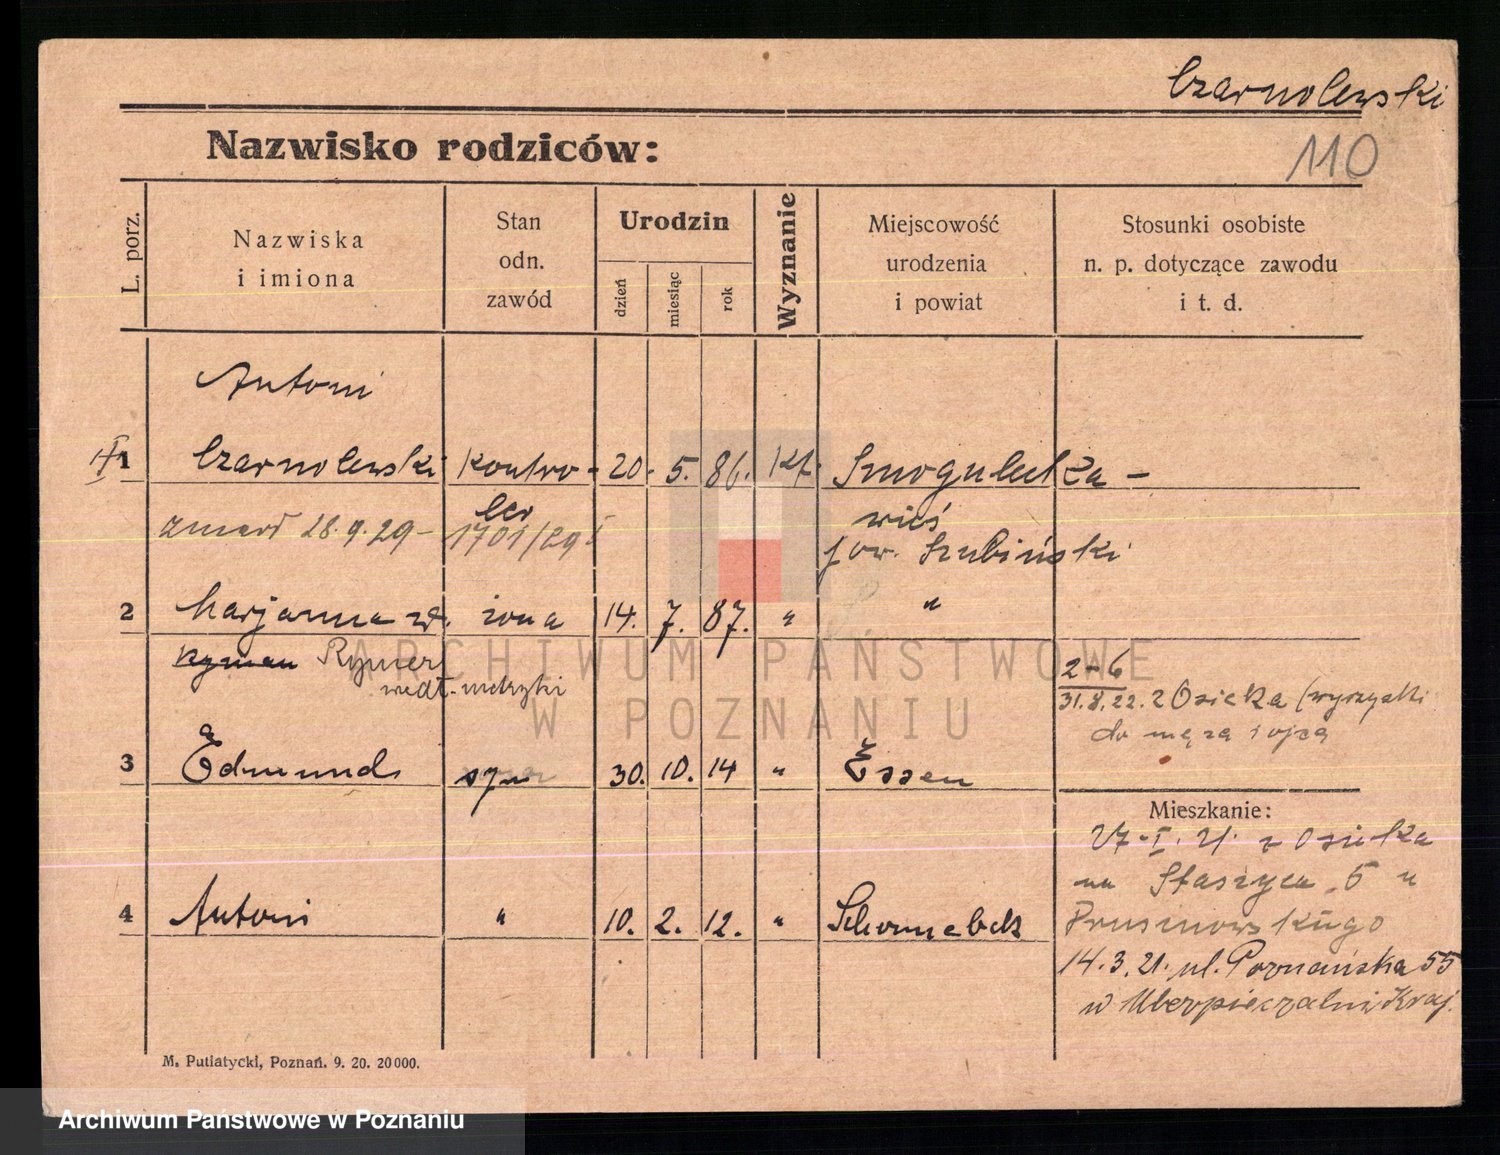 Czarnolewski
110
Nazwisko rodziców:
L. porz.
Nazwiska
i imiona
Stan
odn.
zawód
Urodzin
dzień
miesiąc
rok
Wyznanie
Miejscowość
urodzenia
i powiat
Stosunki osobiste
n. p. dotyczące zawodu
i t. d.
Antoni
1 Czarnolewski Kontro- 20. 5. 86. Kt. Smogulecka -
ler wieś
zmarł 28.9.29 - 1701/29
pow. Szubiński
2 Marjanna zd. żona 14. 7. 87. " "
Ryman Rymer
wedł. metryki
2-6
31.8.22. z Osieka (wyrzyski
do męża i ojca
3 Edmund syn 30. 10. 14 " Essen
Mieszkanie:
27-I. 21. z Osieka
na Staszyca 5 u
Prusinowskiego
4 Antoni " 10. 2. 12. " Schonnebeck
14.3.21. ul. Poznańska 55
w Ubezpieczalni Kraj.
M. Putiatycki, Poznań. 9. 20. 20000.
ARCHIWUM PAŃSTWOWE
W POZNANIU
Archiwum Państwowe w Poznaniu